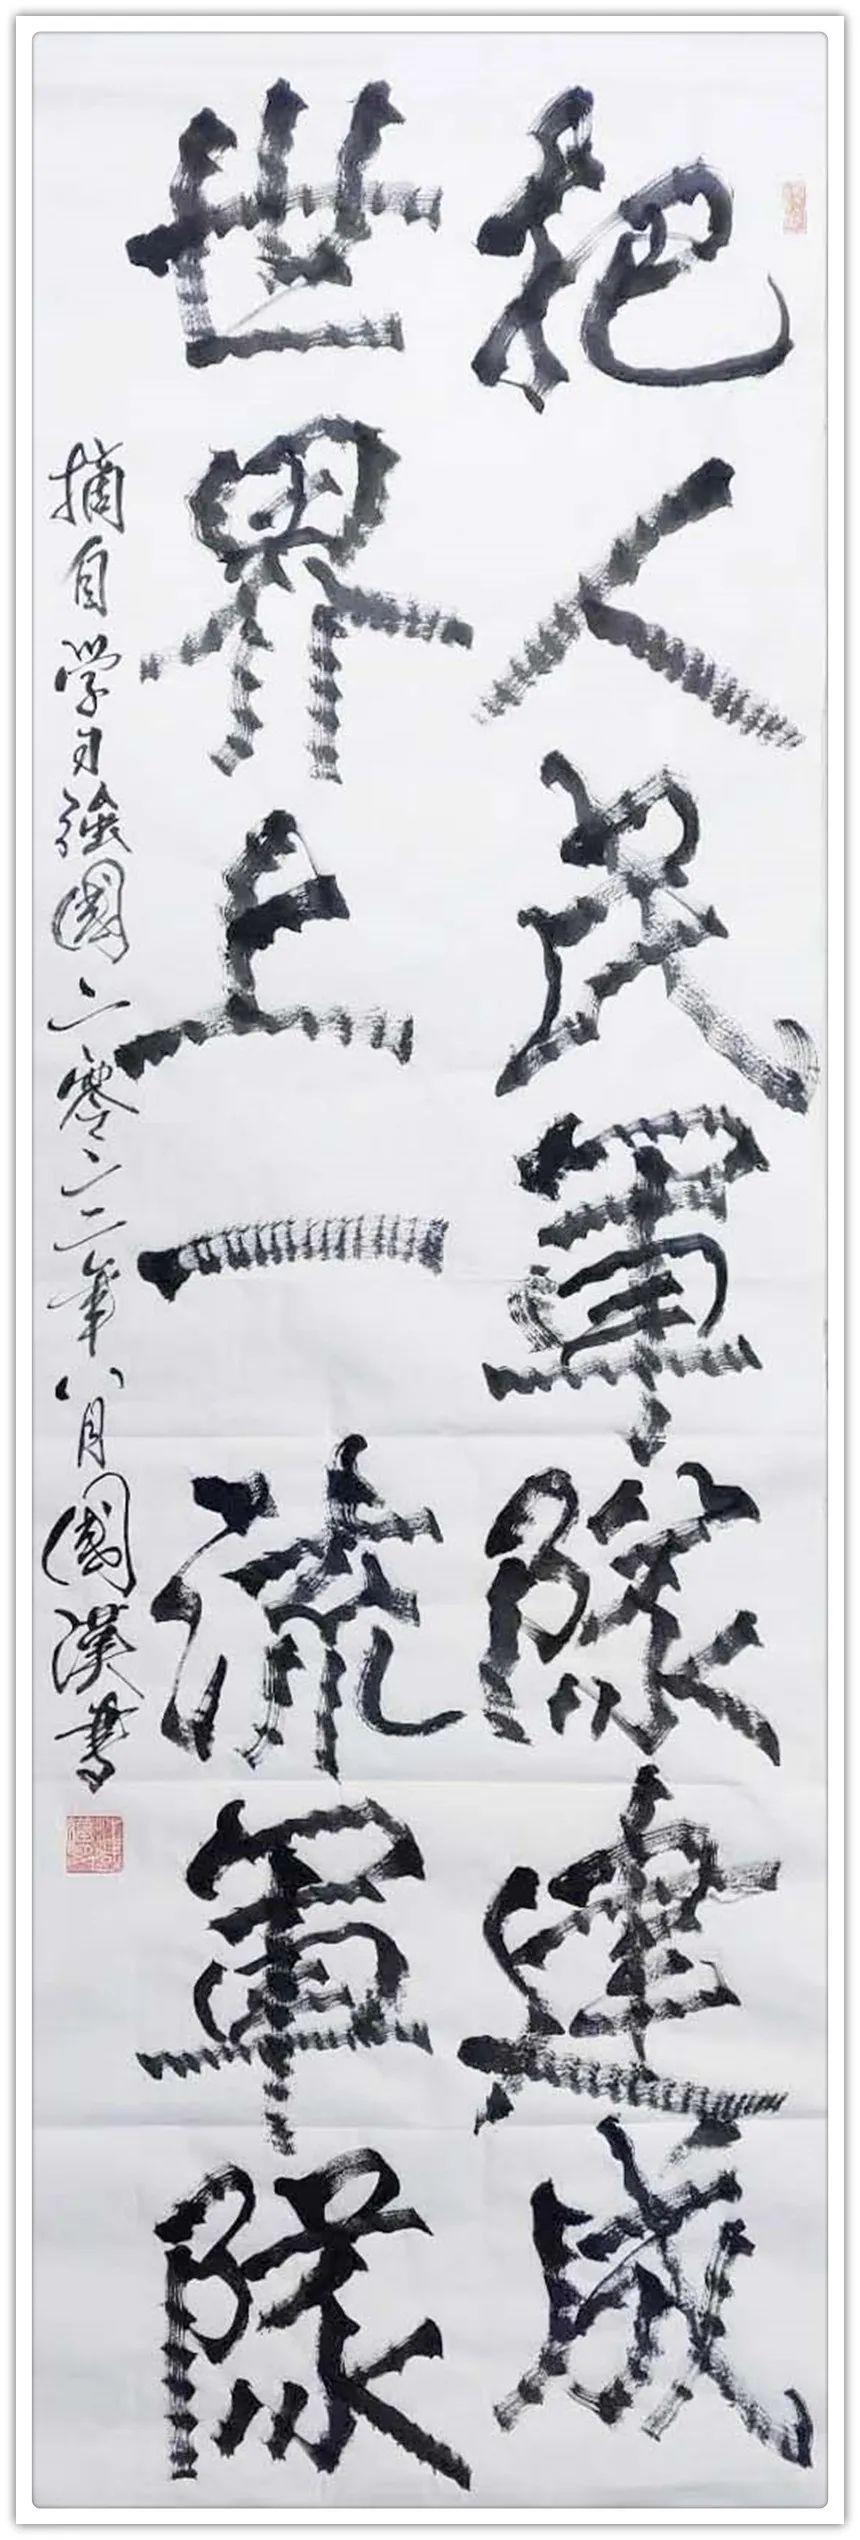 把人民軍隊建成
世界上一流軍隊
摘自学习強國二零二二年八月國漢書